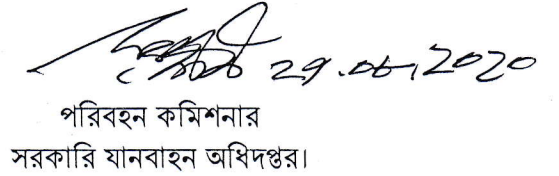 29.06.2020
পরিবহন কমিশনার
সরকারি যানবাহন অধিদপ্তর।